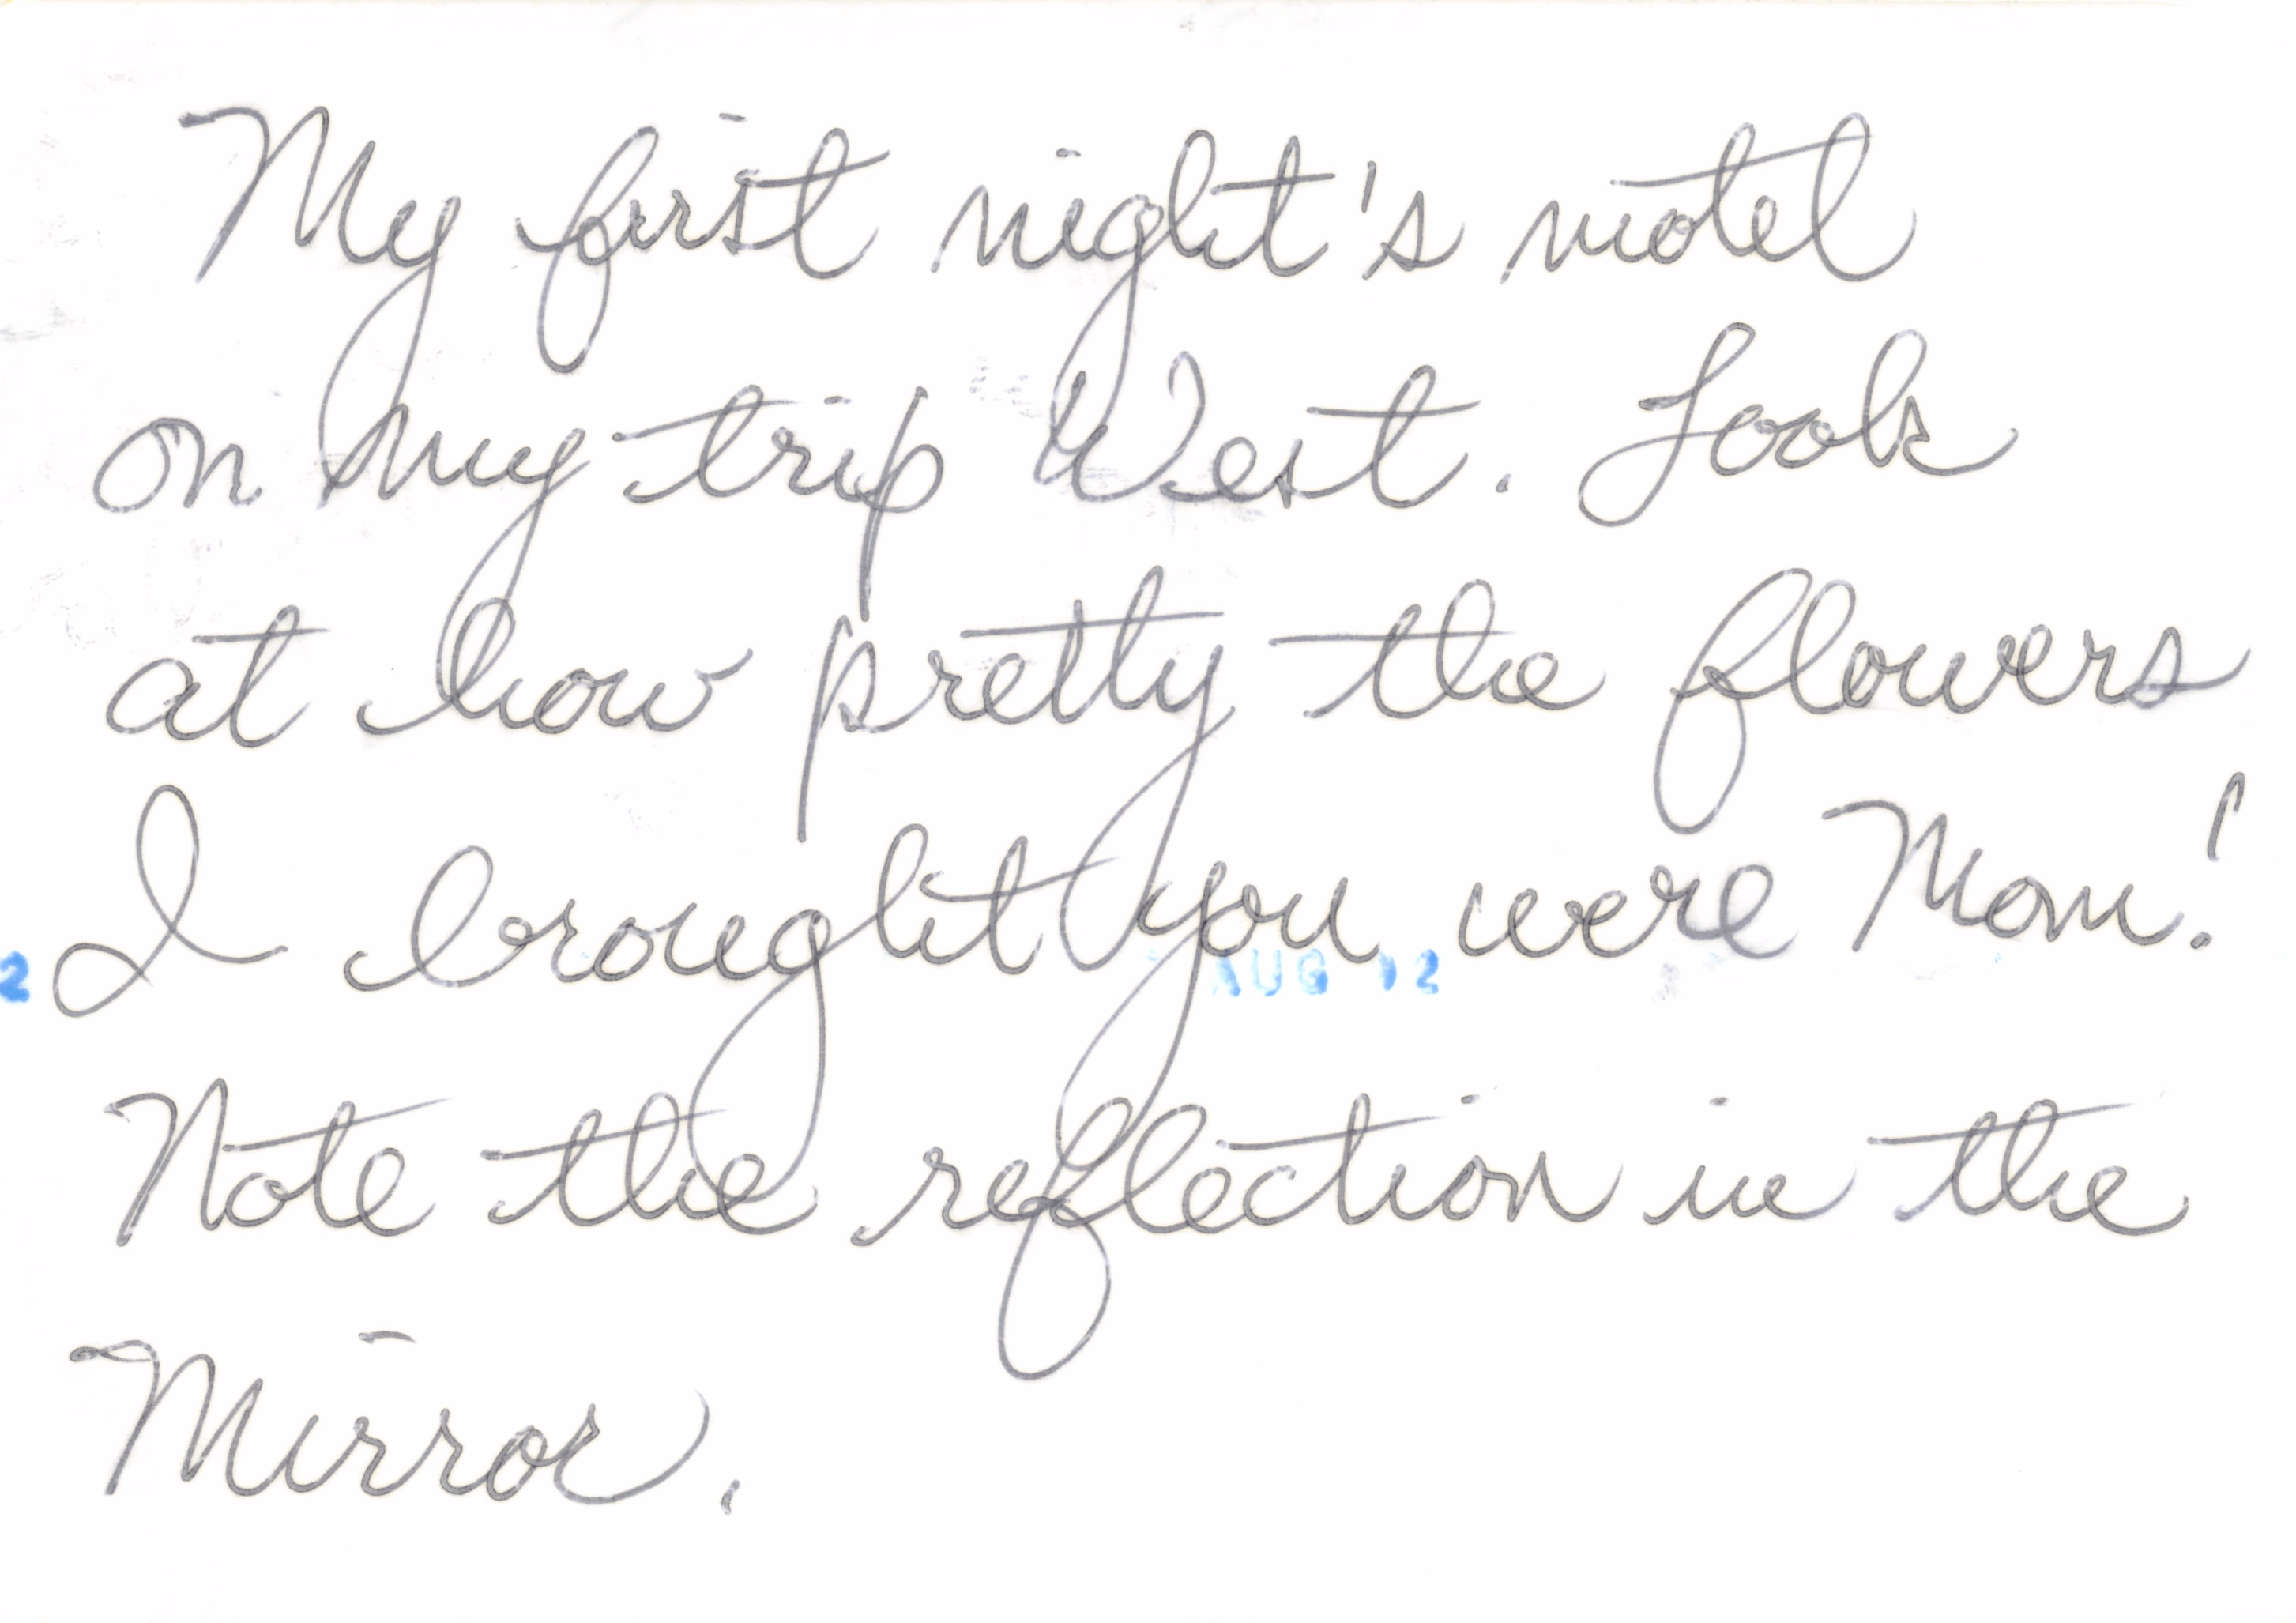 My first night's motel
on my trip West. Look
at how pretty the flowers
I brought you were Mom!
2 AUG 12
Note the reflection in the
Mirror.